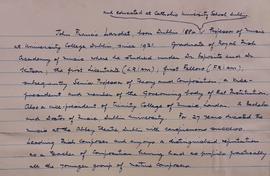 and educated at Catholic University School Dublin
John Francis Larchet born Dublin 1884. Professor of Music
at University College Dublin since 1921. Graduate of Royal Irish
Academy of Music where he studied under Dr Esposito and Dr
Kitson; the first Licentiate (L.R.I.A.M.), first Fellow (F.R.I.A.M.)
subsequently Senior Professor of Harmony and Composition, a Vice-
president and member of the Governing body of that Institution.
Also a vice-president of Trinity College of Music, London. A Bachelor
and Doctor of Music Dublin University. For 27 years directed the
music at the Abbey Theatre Dublin with conspicuous success.
Leading Irish Composer and enjoys a distinguished reputation
as a teacher of Composition having had as pupils practically
all the younger group of native composers.